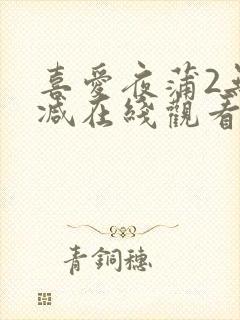 喜愛夜蒲2
减在綫觀看
青銅穗